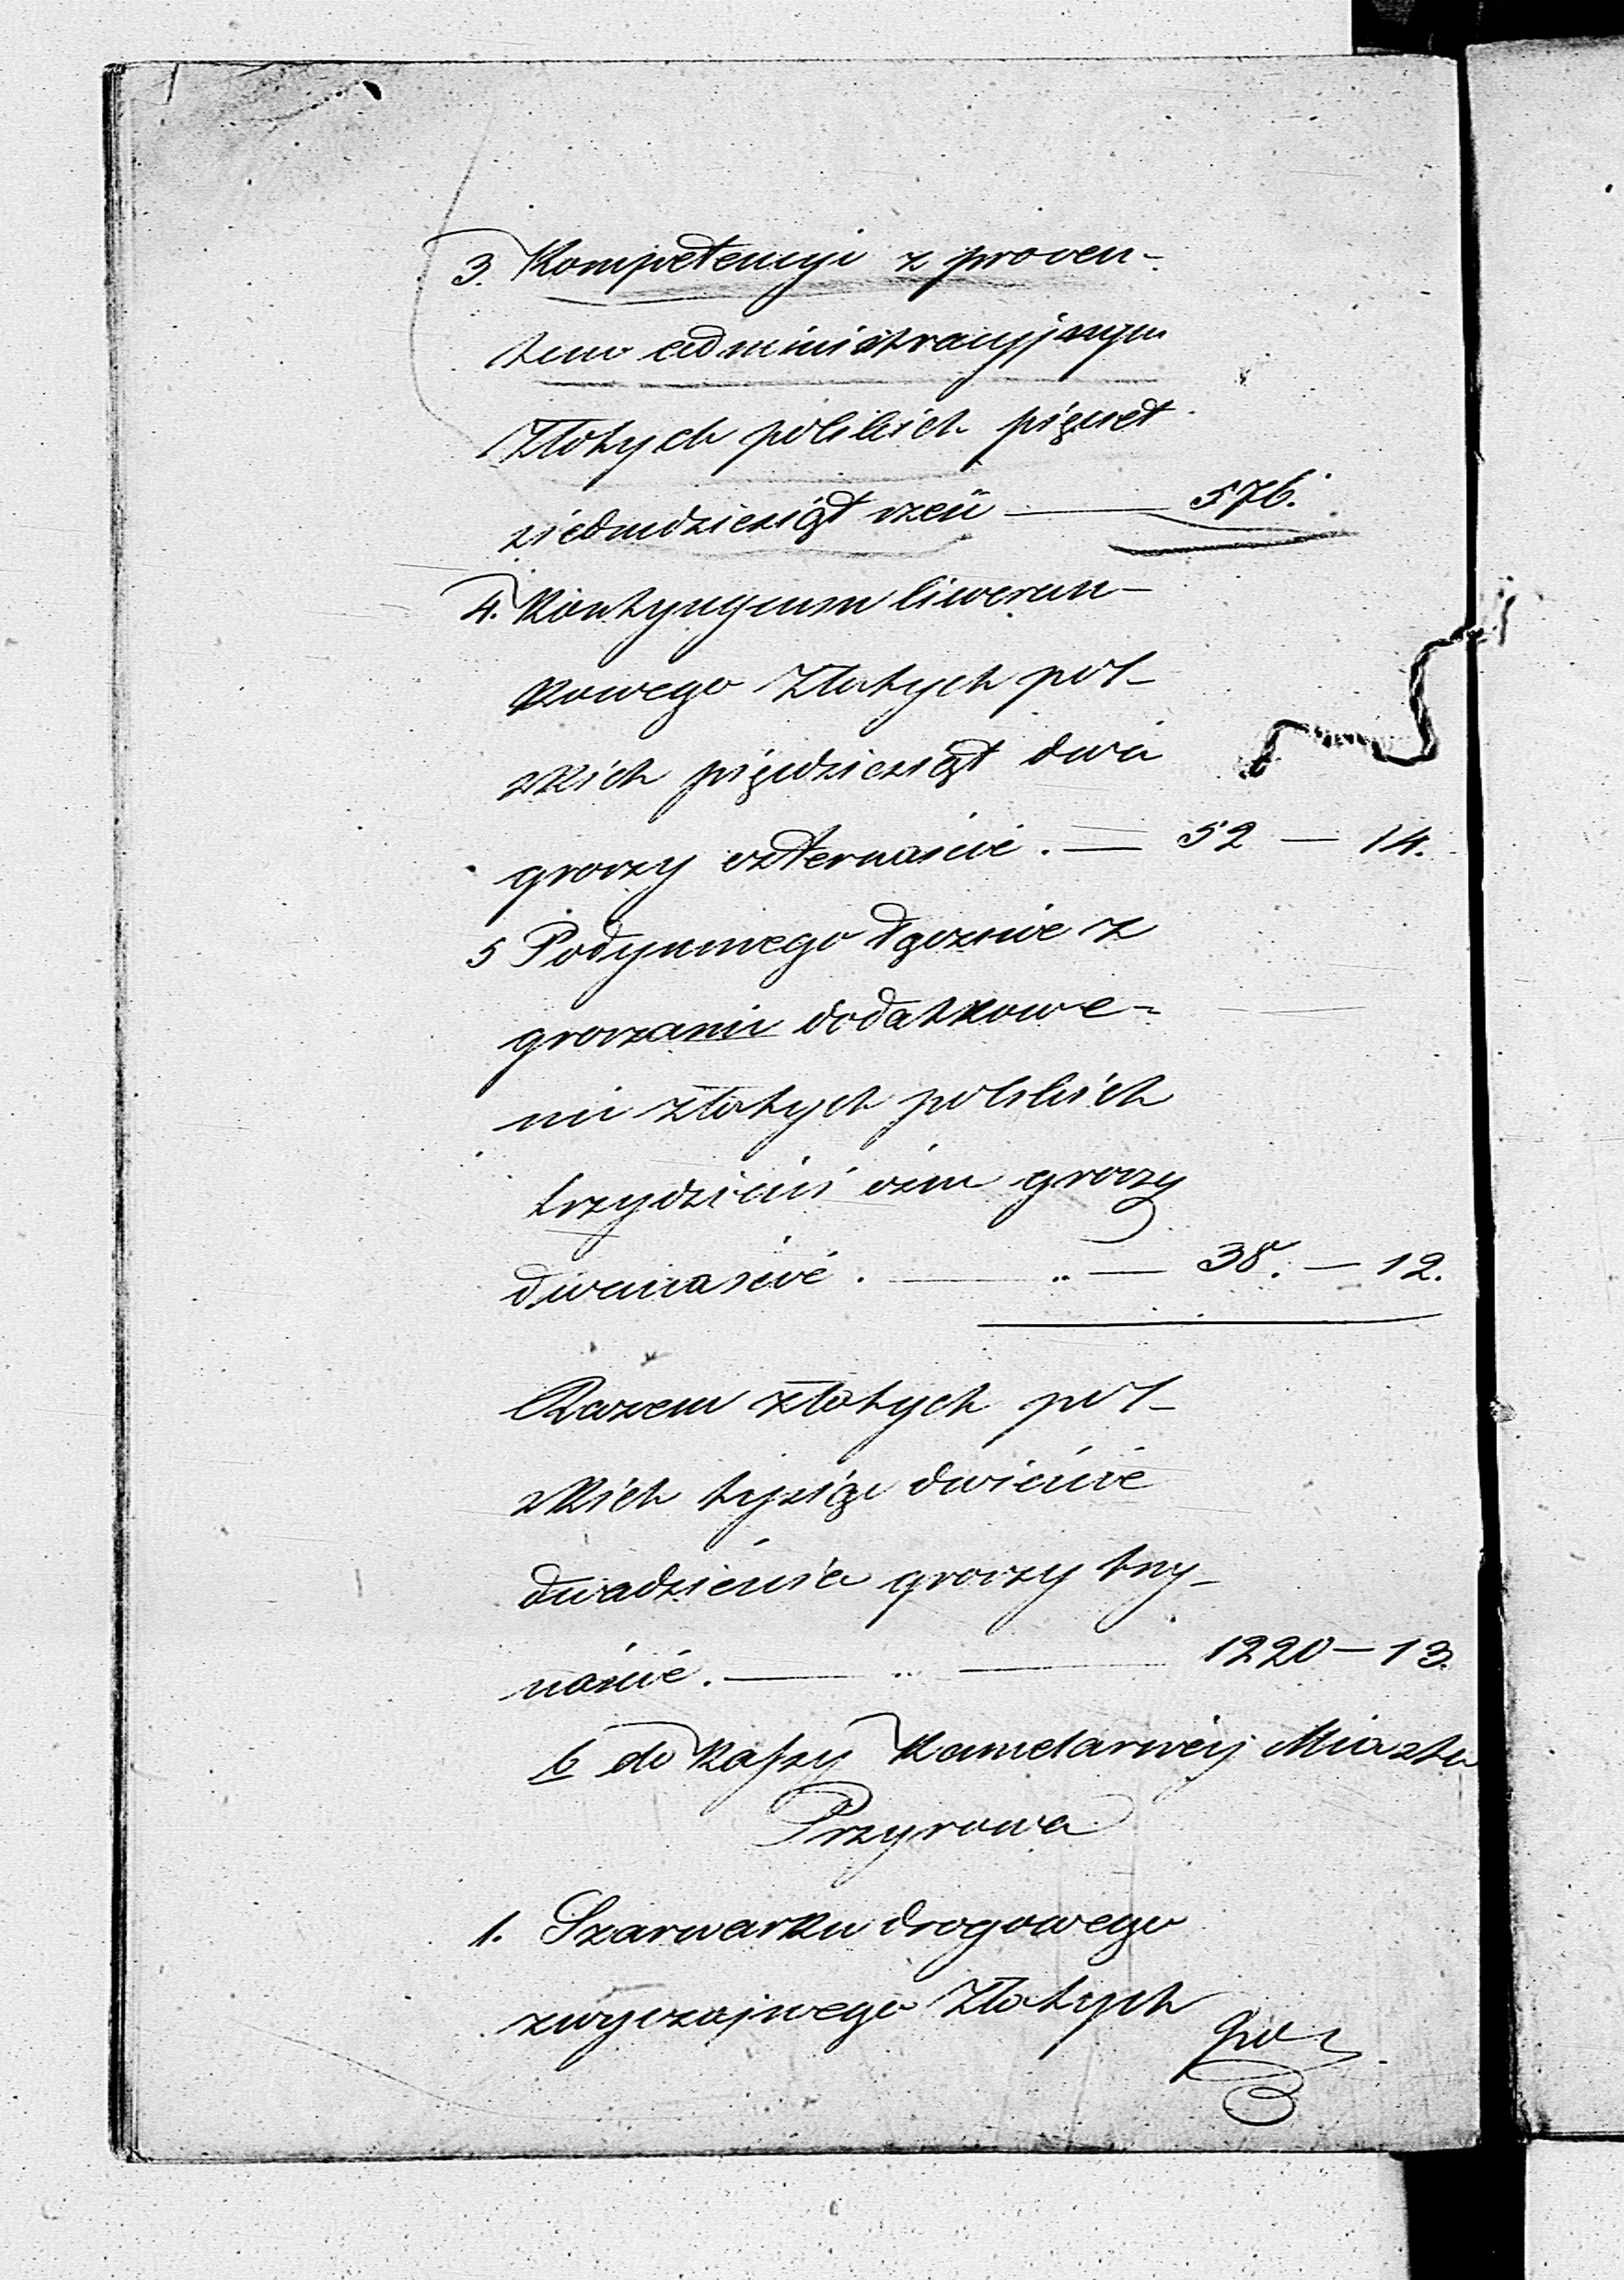 3. Kompetencyi z proven-
tem administracyjnym
Złotych polskich pięćset
siedmdziesiąt sześć — 576.
4. Kontyngensu liweran-
kowego Złotych pol-
skich pięćdziesiąt dwa
groszy czternaście. — 52 — 14.
5 Podymnego łącznie z
groszami dodatkowe-
mi złotych polskich
trzydzieści ośm groszy
dwanaście. — „ — 38. — 12.
Razem złotych pol-
skich tysiąc dwieście
dwadzieścia groszy trzy-
naście. — „ — 1220 — 13.
b do Kassy Kamelarnéj Miasta
Przyrowa
1. Szarwarku drogowego
zwyczajnego Złotych